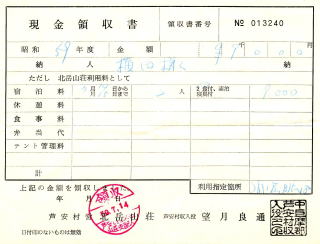 現金領収書 領収書番号 № 013240
昭和 59 年度 金額 ¥9,000
納人
ただし 北岳山荘利用料として
宿泊料 月 日から 日まで 人 9,000
休憩料
食事料
弁当代
テント管理料
計
上記の金額を領収しました 利用指定箇所
年 月 日
芦安村営 北岳山荘 芦安村収入役 望月良通
日付印のないものは無効
領収
59.7.14
中巨摩郡芦安村収入役之印